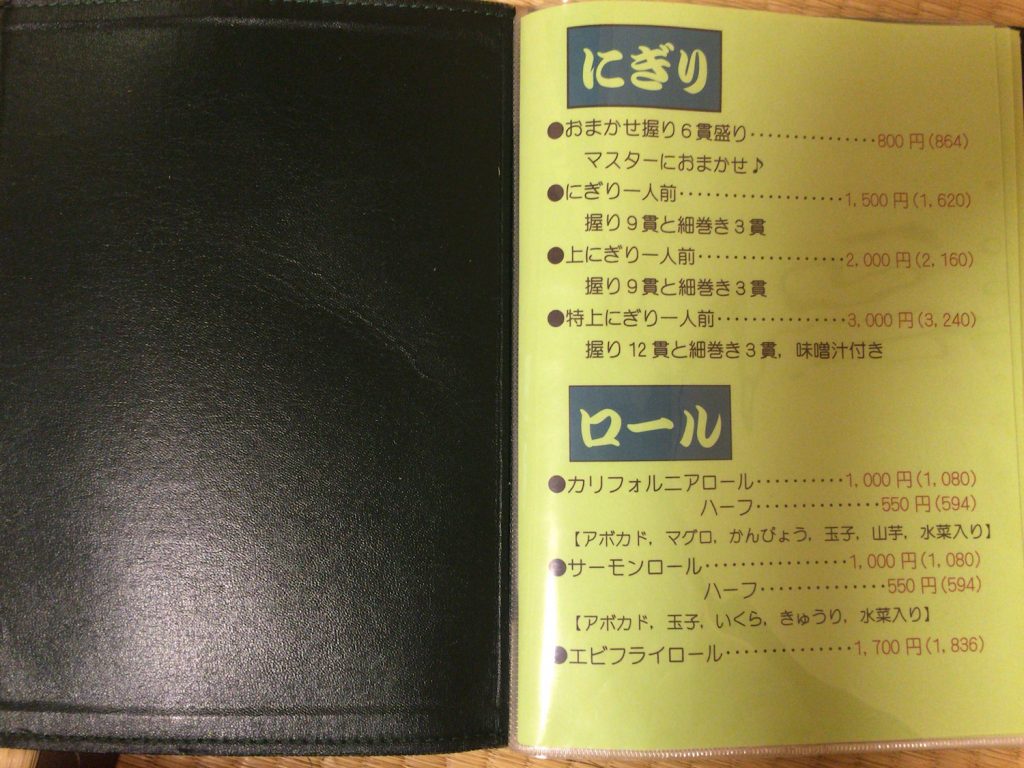 にぎり
●おまかせ握り６貫盛り・・・・・・・・・・・・・・・800円(864)
マスターにおまかせ♪
●にぎり一人前・・・・・・・・・・・・・・・・・・・1,500円(1,620)
握り９貫と細巻き３貫
●上にぎり一人前・・・・・・・・・・・・・・・・・2,000円(2,160)
握り９貫と細巻き３貫
●特上にぎり一人前・・・・・・・・・・・・・・・3,000円(3,240)
握り12貫と細巻き３貫，味噌汁付き
ロール
●カリフォルニアロール・・・・・・・・・・1,000円(1,080)
ハーフ・・・・・・・・・・・・・・550円(594)
【アボカド，マグロ，かんぴょう，玉子，山芋，水菜入り】
●サーモンロール・・・・・・・・・・・・・・・・1,000円(1,080)
ハーフ・・・・・・・・・・・・・・550円(594)
【アボカド，玉子，いくら，きゅうり，水菜入り】
●エビフライロール・・・・・・・・・・・・・・・1,700円(1,836)